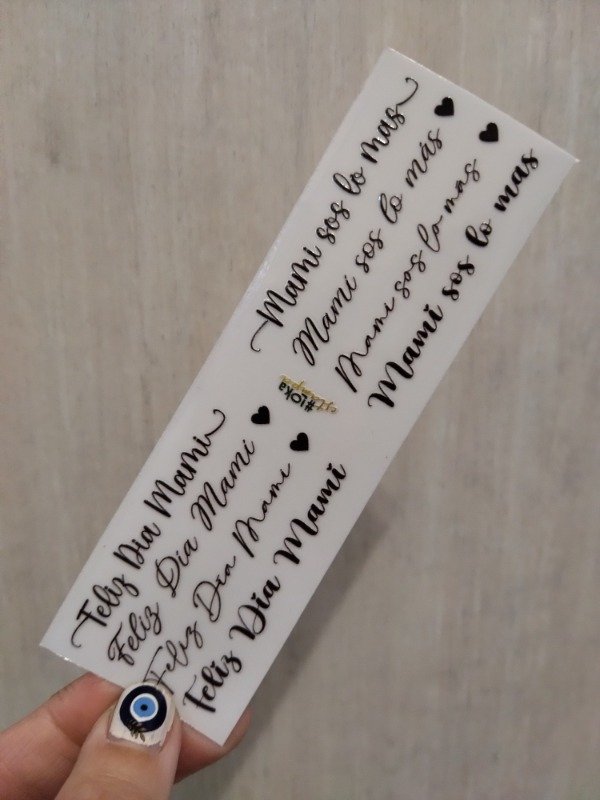 Mami sos lo mas
Mamí sos lo más
Mami sos lo mas
Mami sos lo mas
#LOKa
estampa
Feliz Dia Mami
Feliz Día Mamí
Feliz Dia Mami
Feliz Día Mami